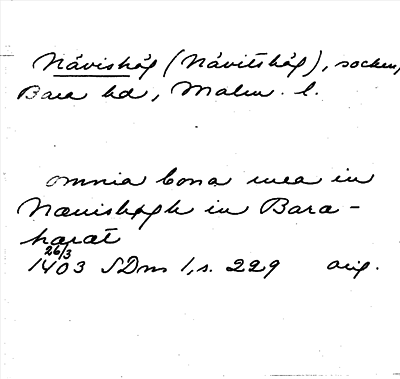 Nävishög (Nävitshög), socken,
Bara hd, Malm. l.
omnia bona mea in
Nævishøgh in Bara-
hæræt
26/3
1403 SDns 1, s. 229 orig.